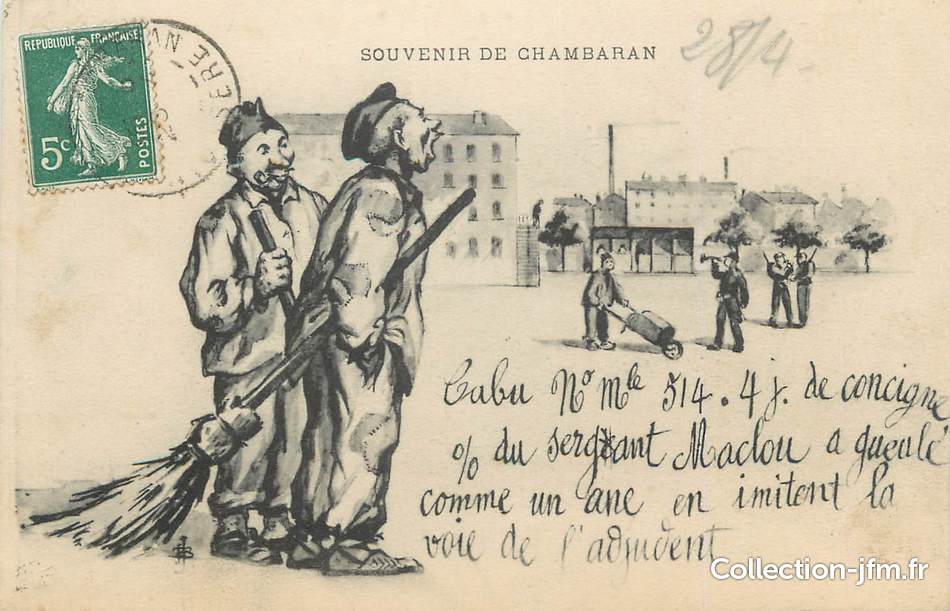 SOUVENIR DE CHAMBARAN
28/4
REPUBLIQUE FRANÇAISE
5c
POSTES
Cabu No Mle 514. 4 j. de concigne
% du sergant Maclou a gueulé
comme un ane en imitent la
voie de l'adjudent
Collection-jfm.fr